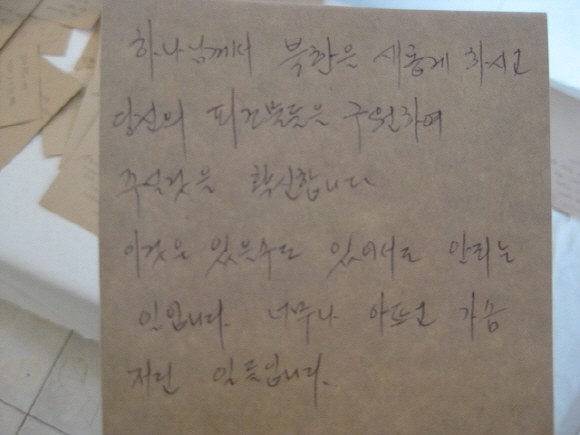 하나님께서 북한을 새롭게 하시고
당신의 피조물들을 구원하여
주실것을 확신합니다
이것은 있을수도 있어서도 안되는
일입니다. 너무나 아프고 가슴
저린 일들입니다.